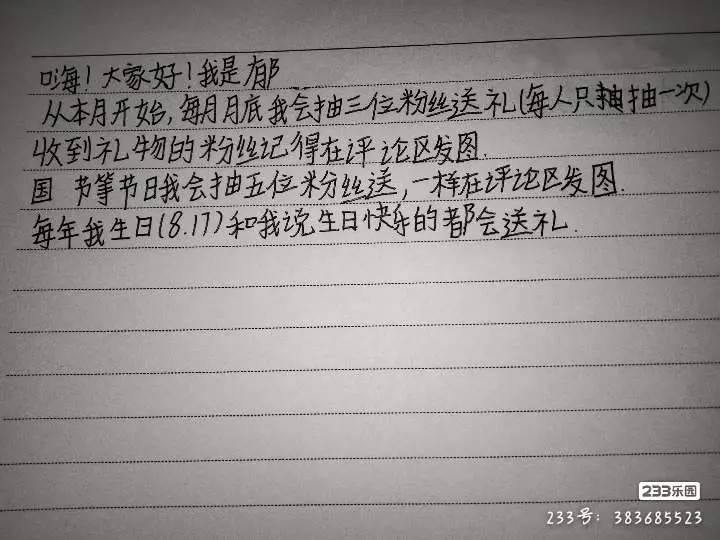 嗨！大家好！我是郁
从本月开始,每月月底我会抽三位粉丝送礼(每人只抽一次)
收到礼物的粉丝记得在评论区发图.
国 节等节日我会抽五位粉丝送,一样在评论区发图.
每年我生日(8.17)和我说生日快乐的都会送礼.
233乐园
233号: 383685523